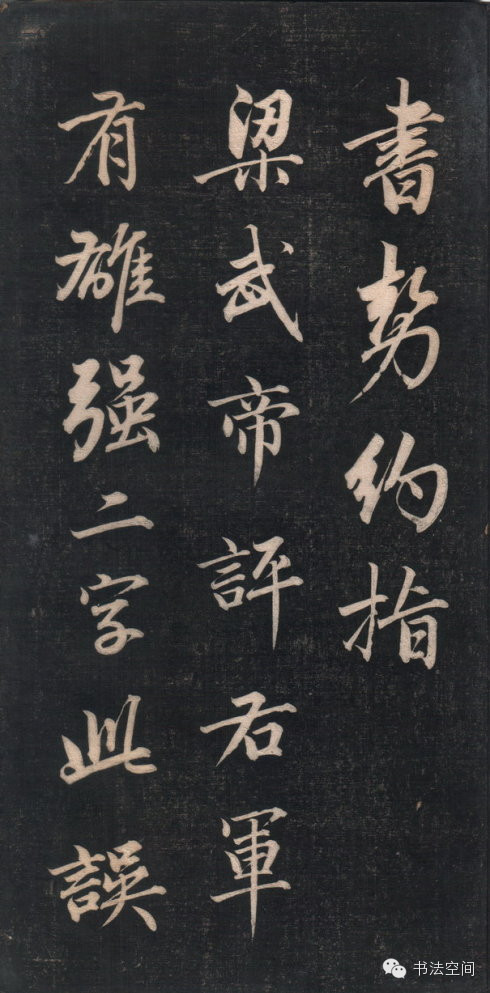 書勢約指
梁武帝評右軍
有雄强二字此誤
书法空间